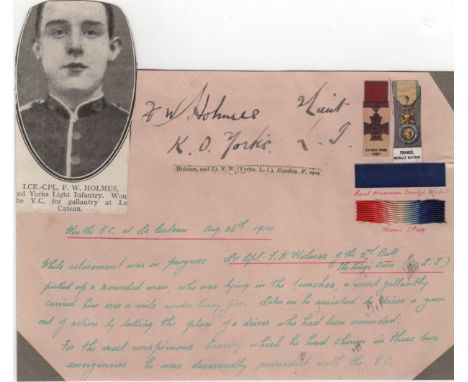 LCE.-CPL. F. W. HOLMES,
and Yorks Light Infantry. Won
the V.C. for gallantry at Le
Cateau.
F W Holmes Lieut
K. O. Yorks L. I.
Holmes, and Lt F. W. (Yorks. L. I.), 1914
VICTORIA CROSS
FRANCE.
MEDAILLE MILITAIRE.
Mons Star
Won the V.C. at Le Cateau Aug 26th 1914
While retirement was in progress Lce Cpl F. W Holmes of the 2nd Batt
The King's Own L. I)
picked up a wounded man, who was lying in the trenches, & most gallantly
carried him over a mile under heavy fire. Later on he assisted to drive a gun
out of action by taking the place of a driver who had been wounded.
For the most conspicuous bravery which he had shown in these two
emergencies he was deservedly rewarded with the V.C.